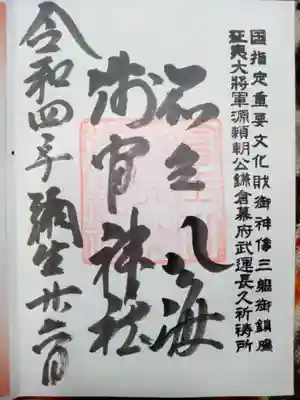 国指定重要文化財御神像三軀御鎮座
征夷大將軍源頼朝公鎌倉幕府武運長久祈禱所
忍之八海
浅間神社
令和四年彌生廿六日